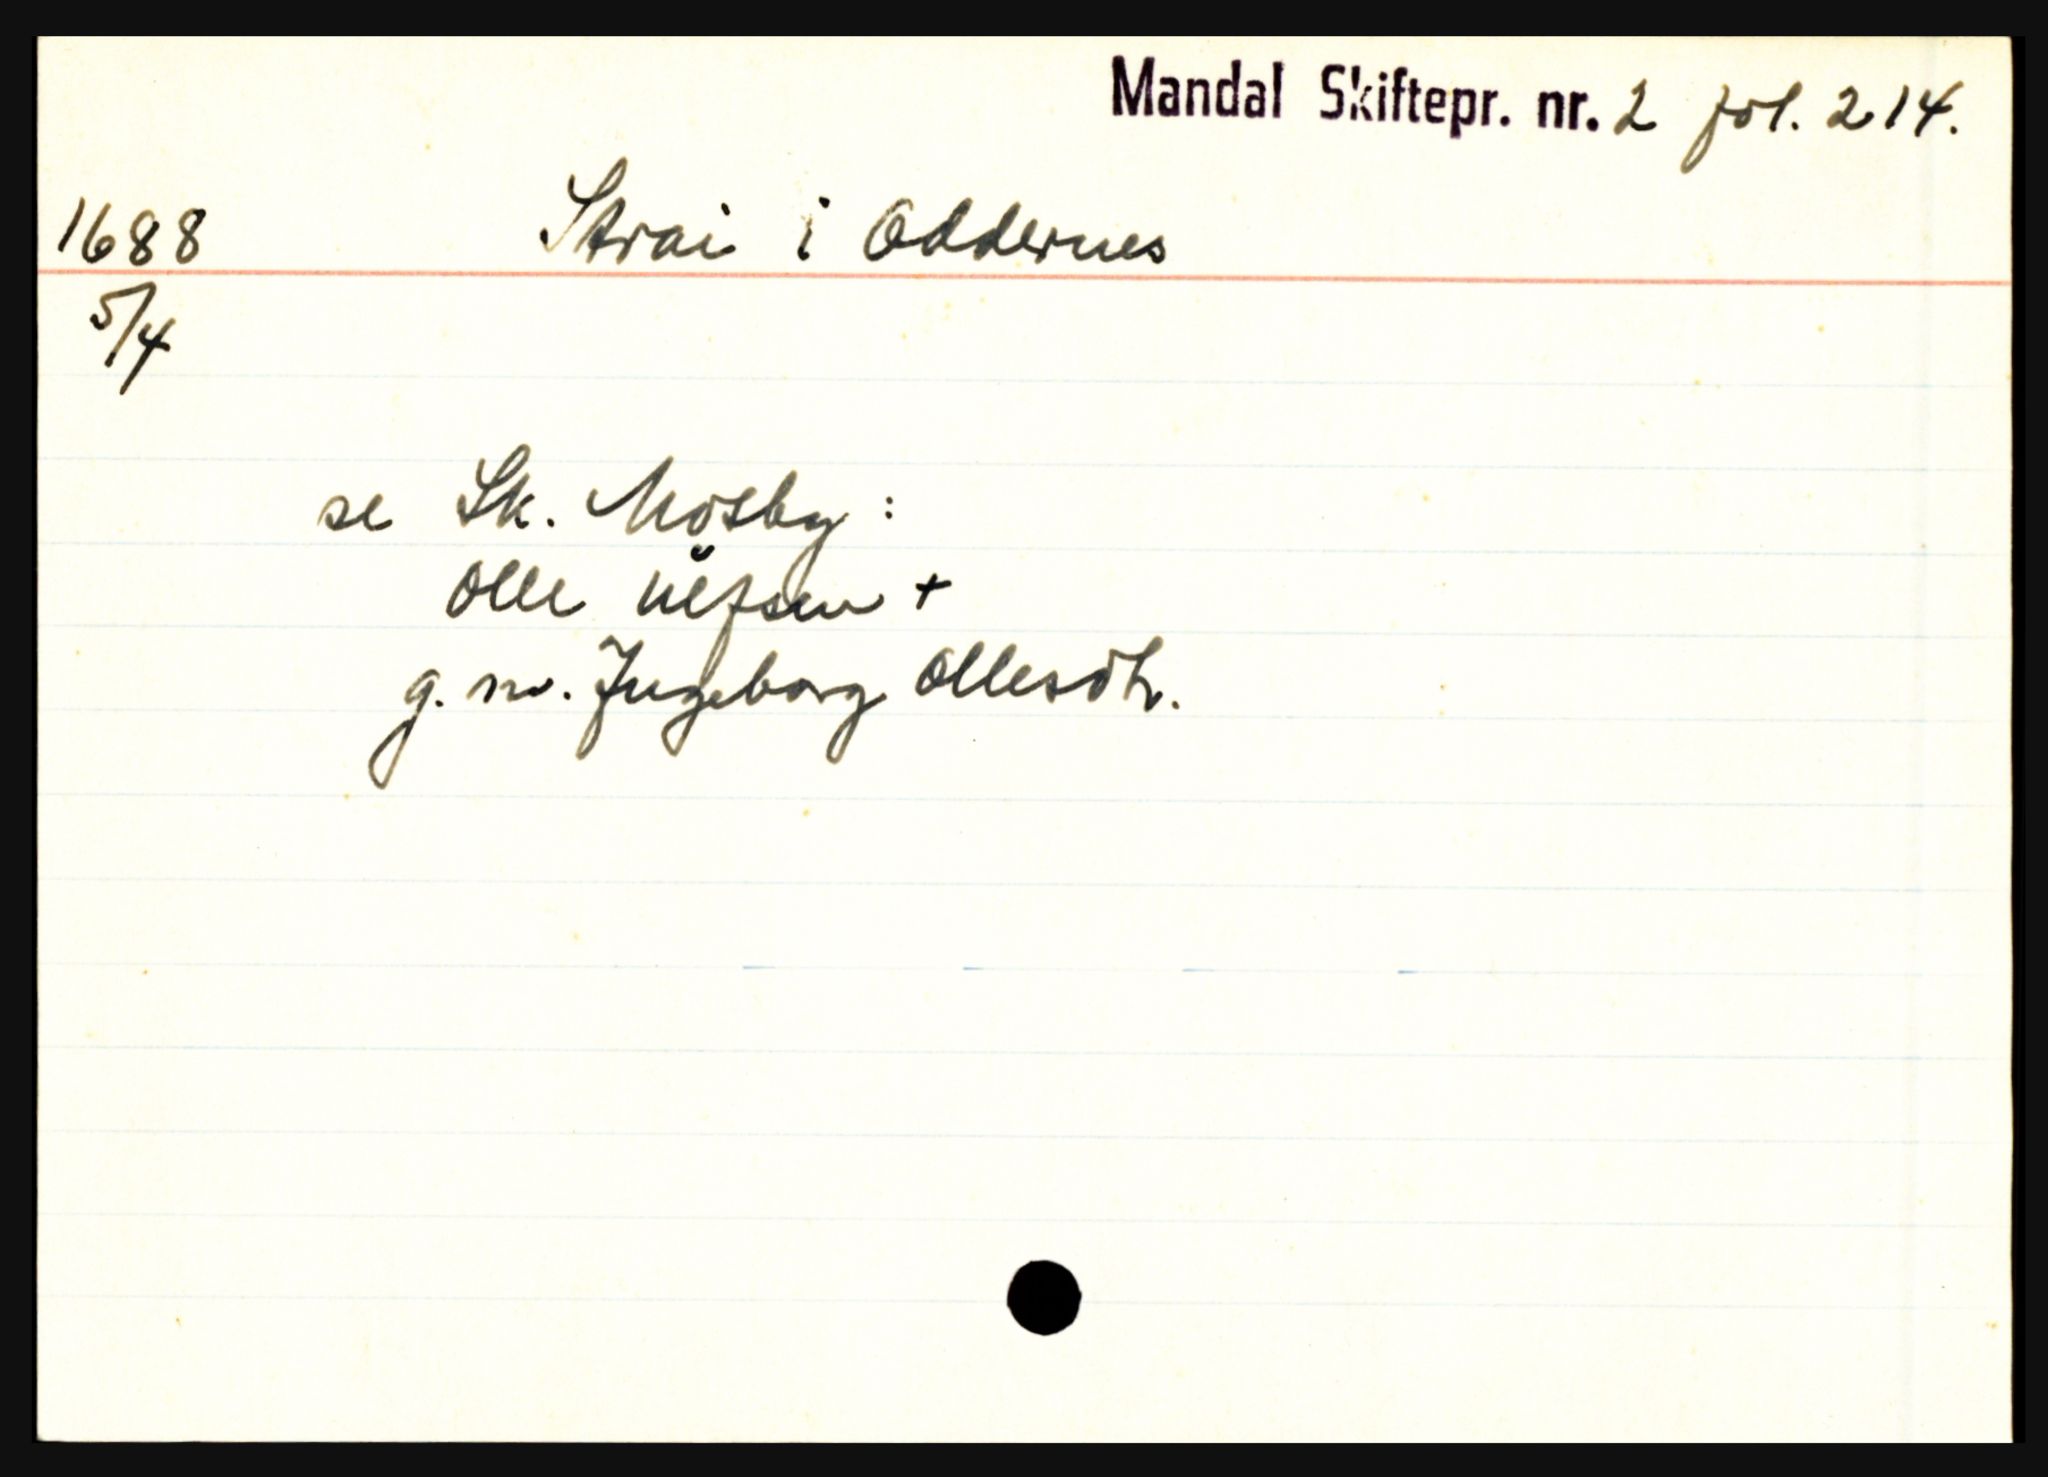 Mandal Skiftepr. nr. 2 fol. 214.
1688 Strai i Oddernes
5/4
se Sk. Mosby:
Olle Ulfsen +
g. m. Ingeborg Ollesdtr.